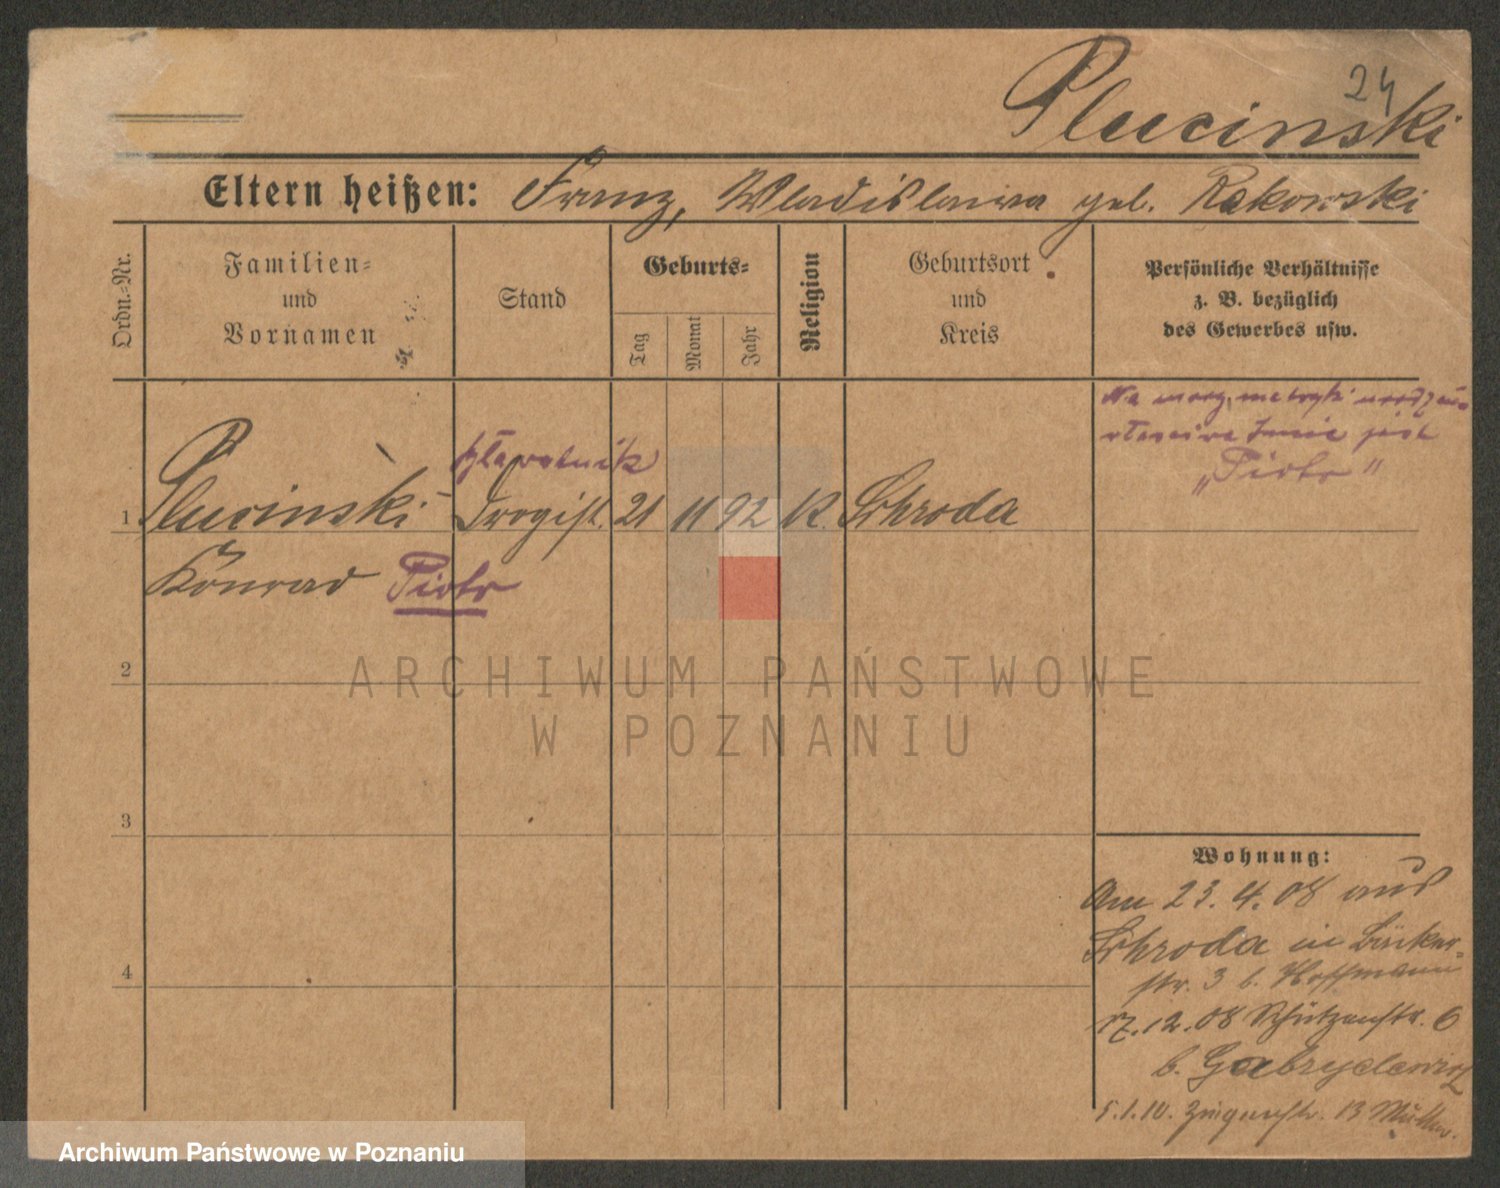 24
Plucinski
Eltern heißen: Franz, Wladislawa geb. Rakowski
Ordn.-Nr.
Familien-
und
Vornamen
Stand
Geburts-
Tag
Monat
Jahr
Religion
Geburtsort
und
Kreis
Persönliche Verhältnisse
z. B. bezüglich
des Gewerbes usw.
Na marg. metryki
imię jest
„Piotr"
1 Plucinski Drogist. 21 11 92 K. Schroda
Konrad Piotr
2
3
4
Wohnung:
Am 23.4.08 aus
Schroda in Bäcker-
str. 3 b. Hoffmann
17.12.08 Schützenstr. 6
b. Gabryelewicz
5.1.10. 13 Müller.
ARCHIWUM PAŃSTWOWE
W POZNANIU
Archiwum Państwowe w Poznaniu